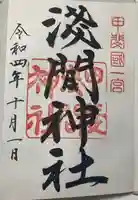 甲斐國一宮
浅間神社
令和四年十月一日